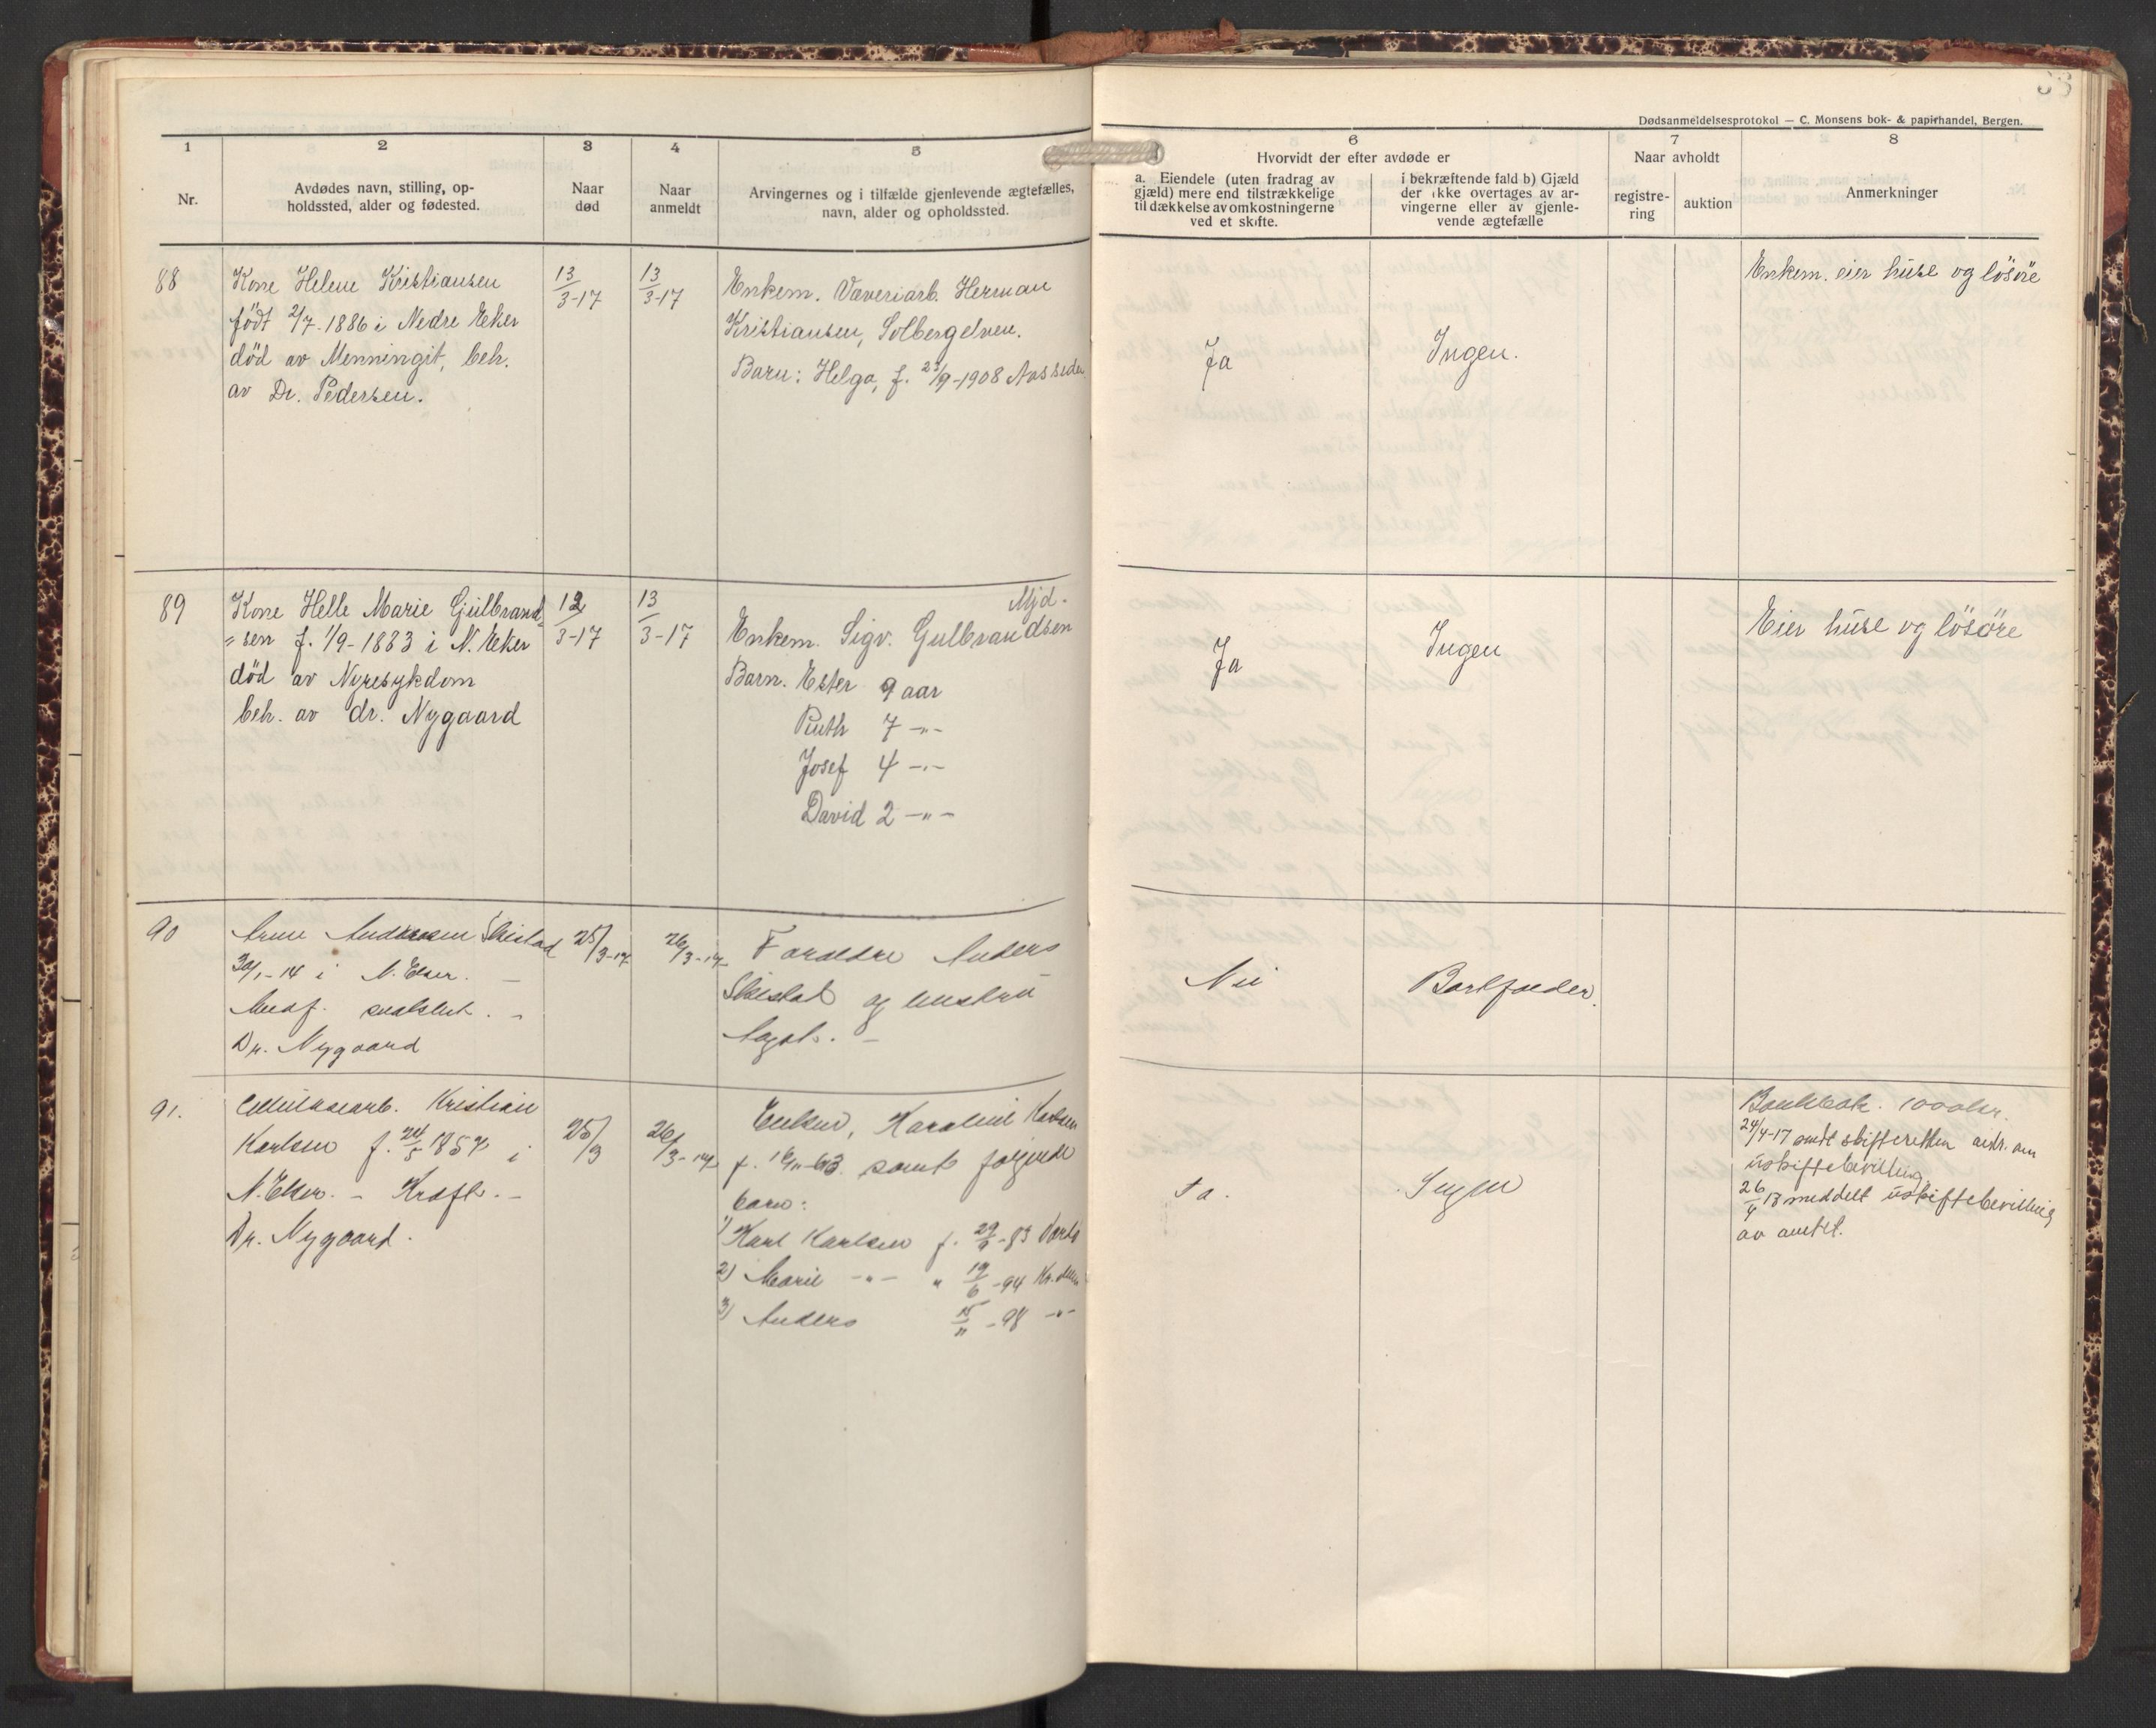 Dødsanmeldelsesprotokol — C. Monsens bok- & papirhandel, Bergen.
1
Nr.
2
Avdødes navn, stilling, op-
holdssted, alder og fødested.
3
Naar
død
4
Naar
anmeldt
5
Arvingernes og i tilfælde gjenlevende ægtefælles,
navn, alder og opholdssted.
6
Hvorvidt der efter avdøde er
a. Eiendele (uten fradrag av
gjæld) mere end tilstrækkelige
til dækkelse av omkostningerne
ved et skifte.
i bekræftende fald b) Gjæld
der ikke overtages av ar-
vingerne eller av gjenle-
vende ægtefælle
7
Naar avholdt
registre-
ring
auktion
8
Anmerkninger
88
Kone Helene Kristiansen
født 2/7-1886 i Nedre Eker
død av Menningit, beh.
av Dr. Pedersen.
13/3-17
13/3-17
Enkem. Væveriarb. Herman
Kristiansen, Solbergelven.
Barn: Helga, f. 23/9-1908
Ja
Ingen.
Enkem. eier huse og løsøre
89
Kone Helle Marie Gulbrand-
"sen f. 1/9-1883 i N. Eker
død av Nyresykdom
beh. av dr. Nygaard
12/3-17
13/3-17
Mjd-
Enkem. Sigv. Gulbrandsen
Barn. Ester 9 aar
Ruth 7 -"-
Josef 4 -"-
David 2 -"-
Ja
Ingen
Eier huse og løsøre
90
Andersen Skistad
30/1-14 i N. Eker. -
Medf.
Dr. Nygaard
25/3-17
26/3-17
Forældre Anders
Skistad og hustru
-
Nei
Bortfalder.
91.
Cellulosearb. Kristian
Karlsen f. 24/5 1857 i
N. Eker. - Kræft. -
Dr. Nygaard.
25/3
26/3-17
Enken, Karoline Karlsen
f. 16/11-63. samt følgende
barn:
1) Karl Karlsen f. 29/9-83
2) Marie -"- " 19/6-94 Kr.
3) Anders 15/11-98 -"-
Ja.
Ingen
Bankbok. 1000 kr.
24/4-17 sendt skifteretten andr. om
uskiftebevilling.
26/4 13 meddelt uskiftebevilling
av amtet.